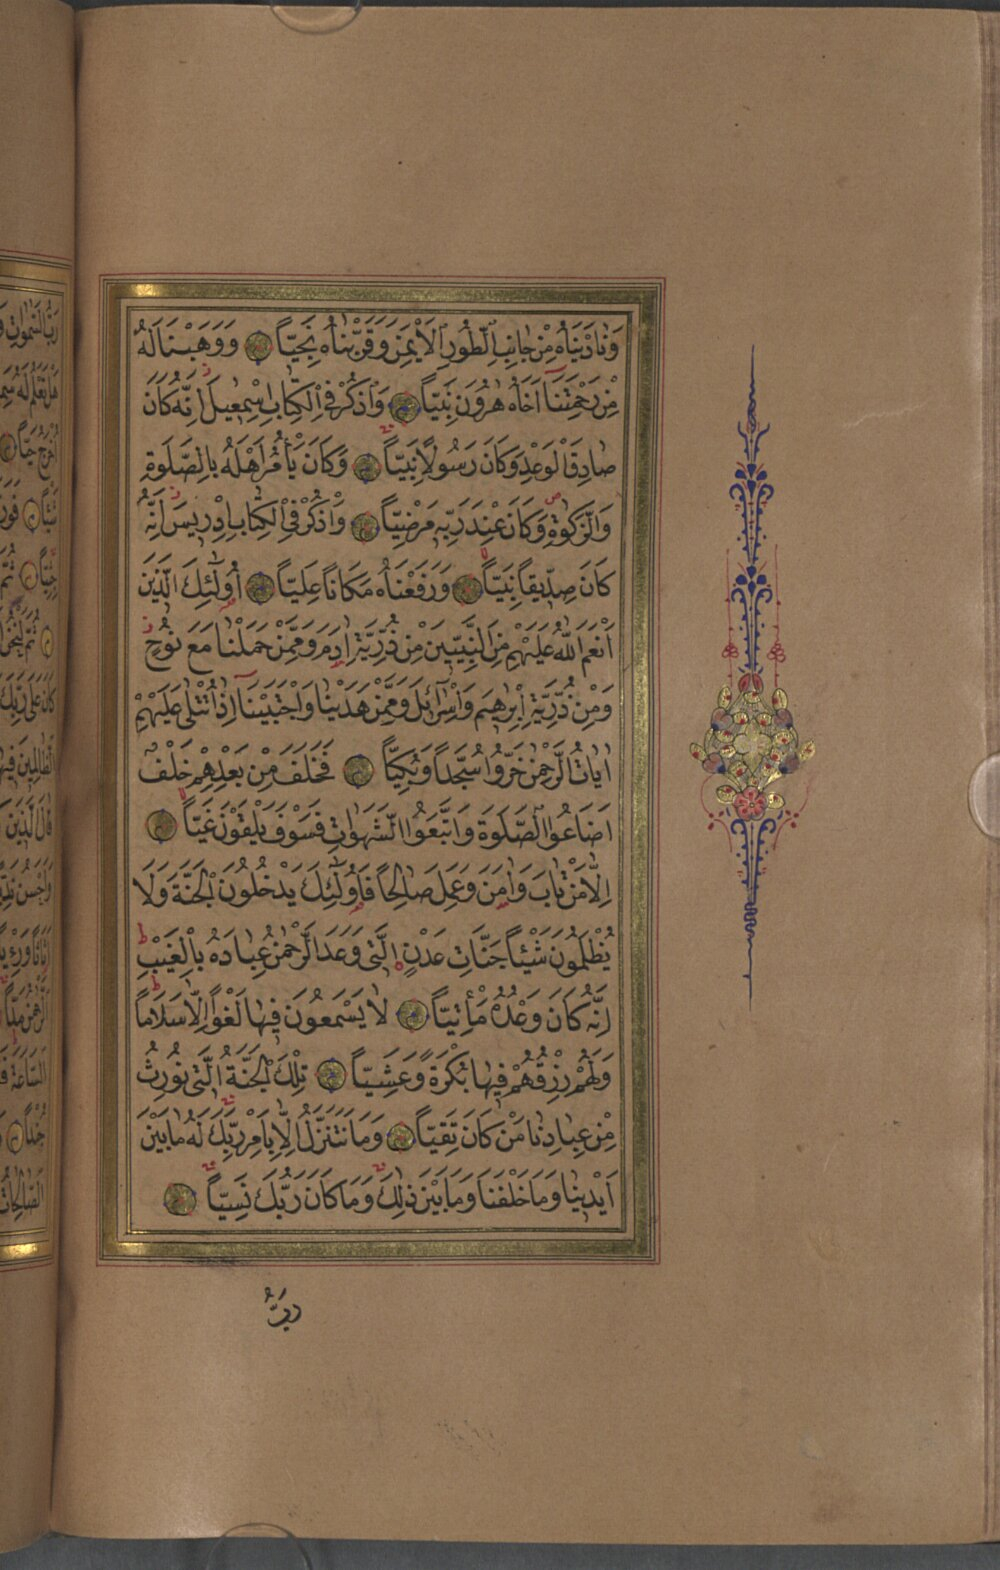 وَنَادَيْنَاهُ مِنْ جَانِبِ الطُّورِ الْاَيْمَنِ وَقَرَّبْنَاهُ نَجِيّاً وَوَهَبْنَا لَهُ
مِنْ رَحْمَتِنَٓا اَخَاهُ هٰرُونَ نَبِيّاً وَاذْكُرْ فِي الْكِتَابِ اِسْمٰعِيلَ اِنَّهُ كَانَ
صَادِقَ الْوَعْدِ وَكَانَ رَسُولاً نَبِيّاً وَكَانَ يَأْمُرُ اَهْلَهُ بِالصَّلٰوةِ
وَالزَّكٰوةِ وَكَانَ عِنْدَ رَبِّهِ مَرْضِيّاً وَاذْكُرْ فِي الْكِتَابِ اِدْرِيسَ اِنَّهُ
كَانَ صِدِّيقاً نَبِيّاً وَرَفَعْنَاهُ مَكَاناً عَلِيّاً اُولٰٓئِكَ الَّذِينَ
اَنْعَمَ اللّٰهُ عَلَيْهِمْ مِنَ النَّبِيّينَ مِنْ ذُرِّيَّةِ اٰدَمَ وَمِمَّنْ حَمَلْنَا مَعَ نُوحٍ
وَمِنْ ذُرِّيَّةِ اِبْرٰهِيمَ وَاِسْرَٓائِلَ وَمِمَّنْ هَدَيْنَا وَاجْتَبَيْنَٓا اِذَا تُتْلٰى عَلَيْهِمْ
اٰيَاتُ الرَّحْمٰنِ خَرُّوا سُجَّداً وَبُكِيّاً فَخَلَفَ مِنْ بَعْدِهِمْ خَلْفٌ
اَضَاعُوا الصَّلٰوةَ وَاتَّبَعُوا الشَّهَوَاتِ فَسَوْفَ يَلْقَوْنَ غَيّاً
اِلَّا مَنْ تَابَ وَاٰمَنَ وَعَمِلَ صَالِحاً فَاُولٰٓئِكَ يَدْخُلُونَ الْجَنَّةَ وَلَا
يُظْلَمُونَ شَيْئاً جَنَّاتِ عَدْنٍ الَّتِي وَعَدَ الرَّحْمٰنُ عِبَادَهُ بِالْغَيْبِ
اِنَّهُ كَانَ وَعْدُهُ مَأْتِيّاً لَا يَسْمَعُونَ فِيهَا لَغْواً اِلَّا سَلَاماً
وَلَهُمْ رِزْقُهُمْ فِيهَا بُكْرَةً وَعَشِيّاً تِلْكَ الْجَنَّةُ الَّتِي نُورِثُ
مِنْ عِبَادِنَا مَنْ كَانَ تَقِيّاً وَمَا نَتَنَزَّلُ اِلَّا بِاَمْرِ رَبِّكَ لَهُ مَا بَيْنَ
اَيْدِينَا وَمَا خَلْفَنَا وَمَا بَيْنَ ذٰلِكَ وَمَا كَانَ رَبُّكَ نَسِيّاً
رَبُّ